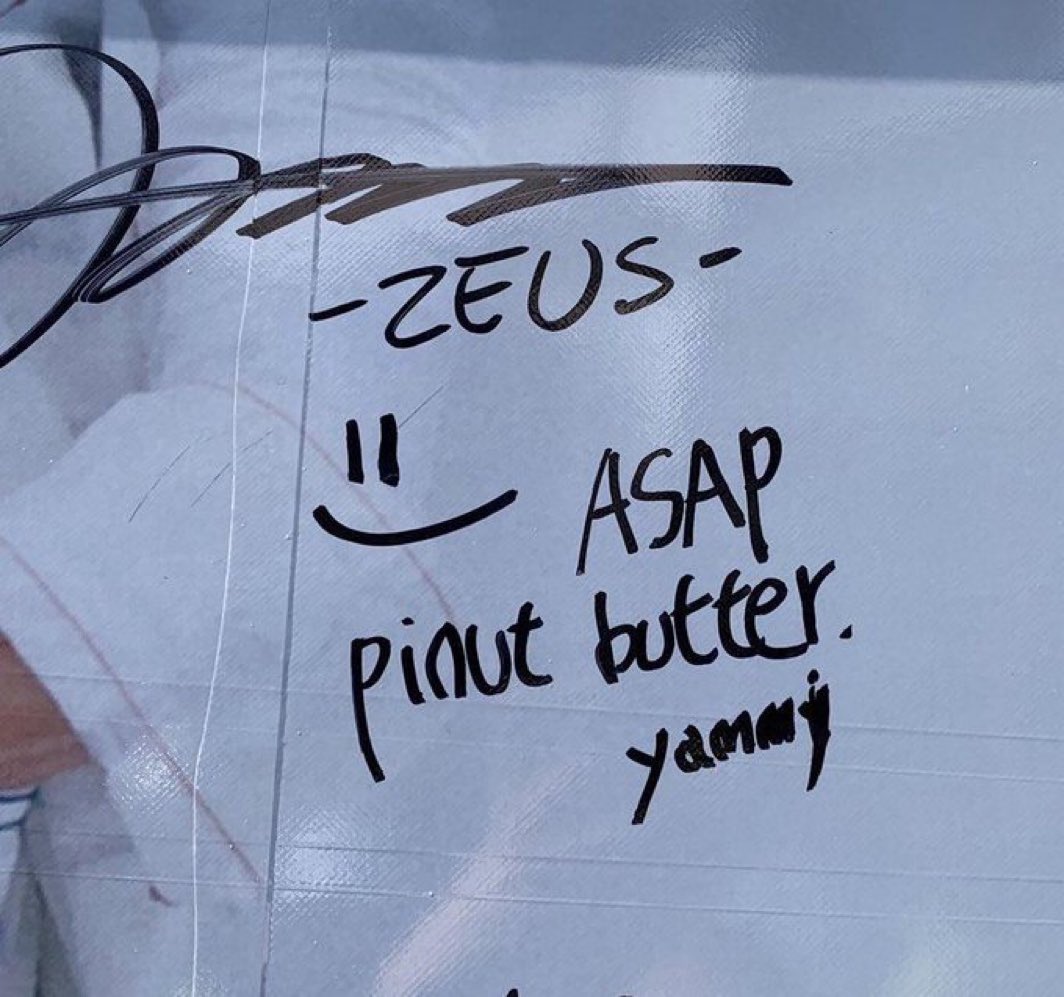 -ZEUS-
ASAP
pinut butter.
yammy